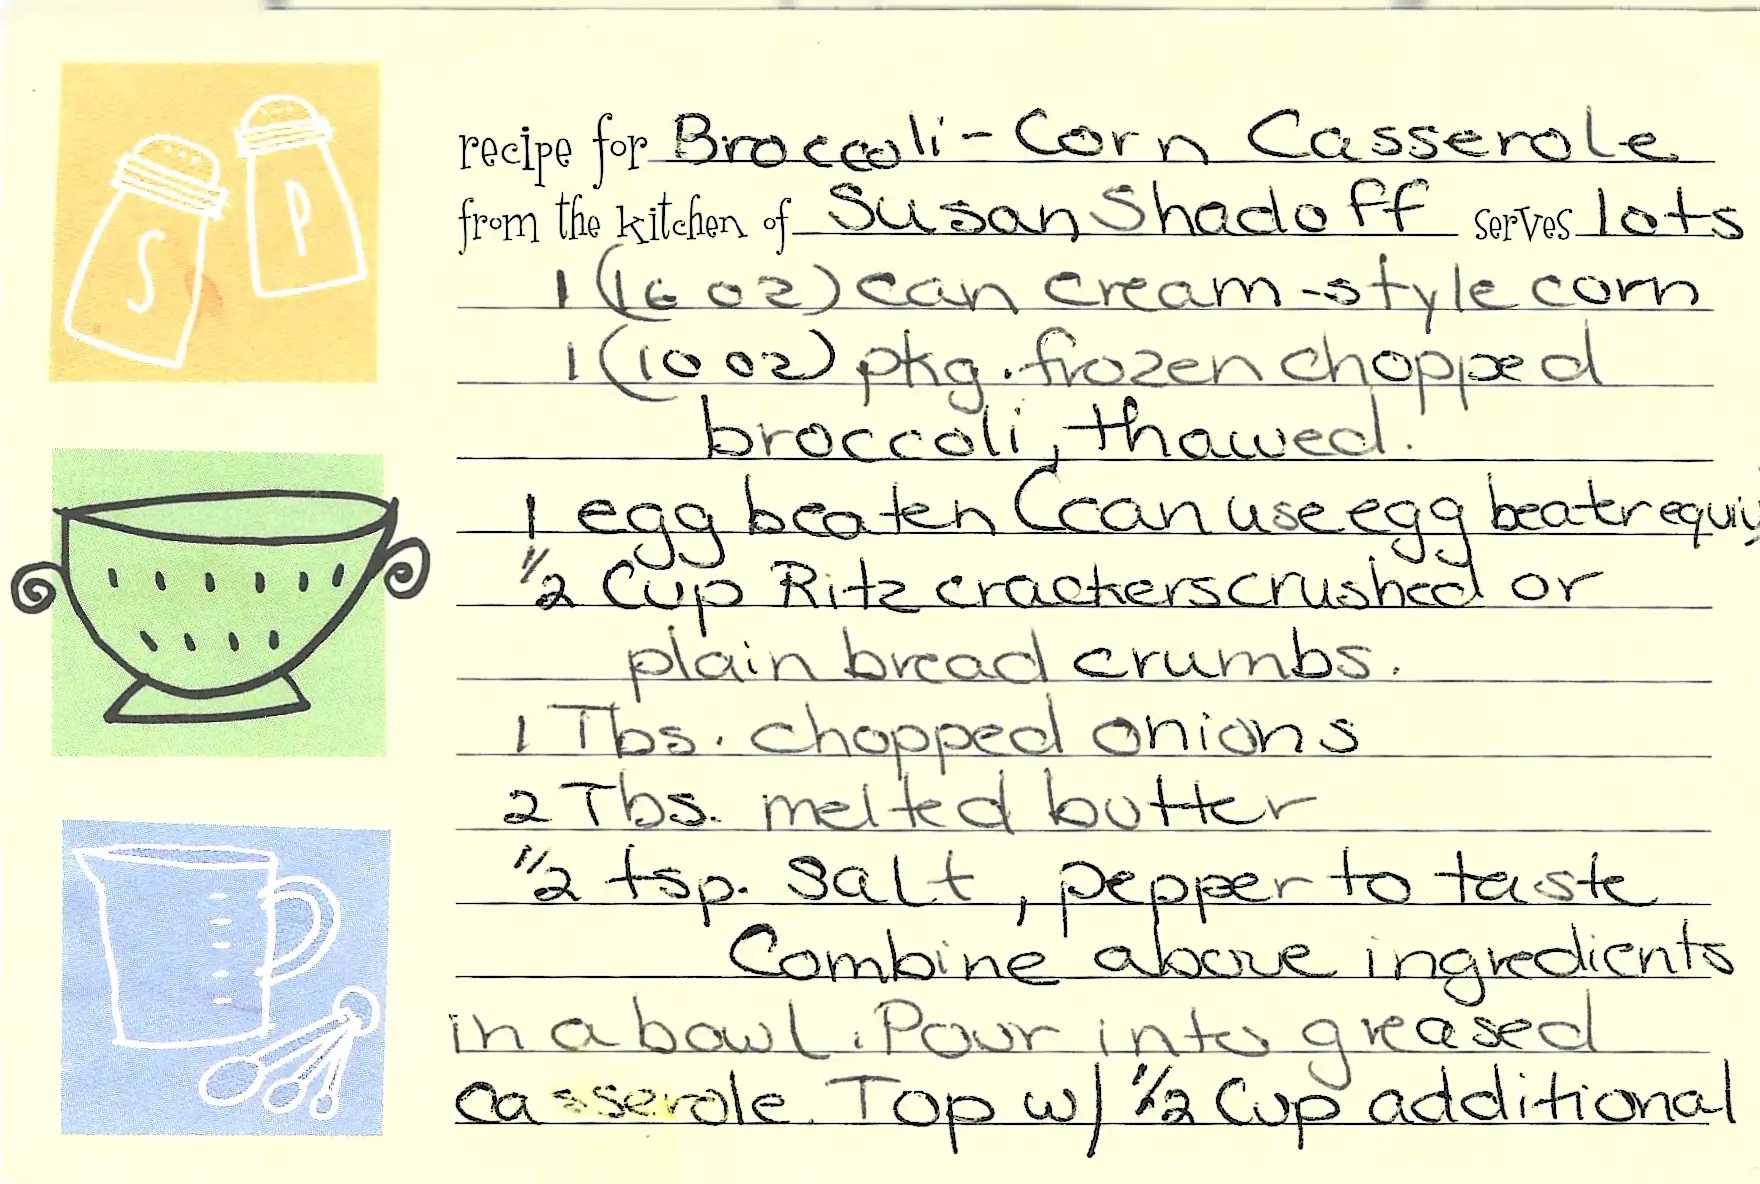 recipe for Broccoli-Corn Casserole
from the kitchen of Susan Shadoff serves lots
1 (16 oz) can cream-style corn
1 (10 oz) pkg. frozen chopped
broccoli, thawed.
1 egg beaten (can use egg beater equiv
1/2 Cup Ritz crackers crushed or
plain bread crumbs.
1 Tbs. chopped onions
2 Tbs. melted butter
1/2 tsp. salt, pepper to taste
Combine above ingredients
in a bowl. Pour into greased
casserole. Top w/ 1/2 Cup additional
S
P